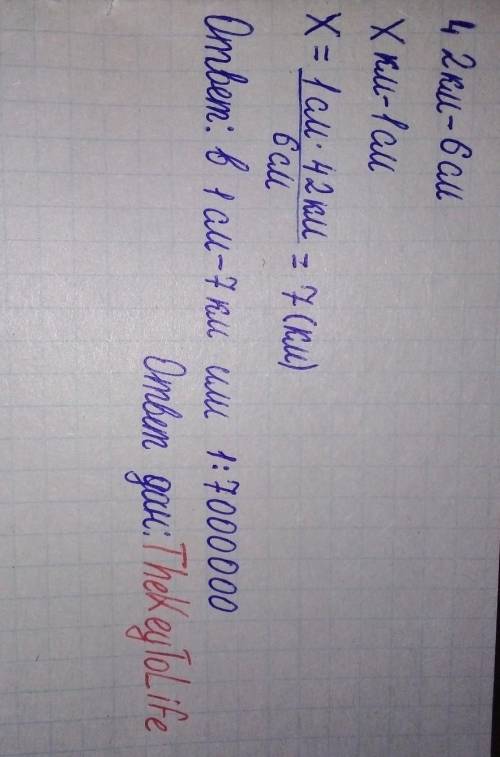 42км-6см
Xкм-1см
X = 1см·42км / 6см = 7(км)
Ответ: в 1см-7км или 1:7000000
Ответ дан: TheKeyToLife